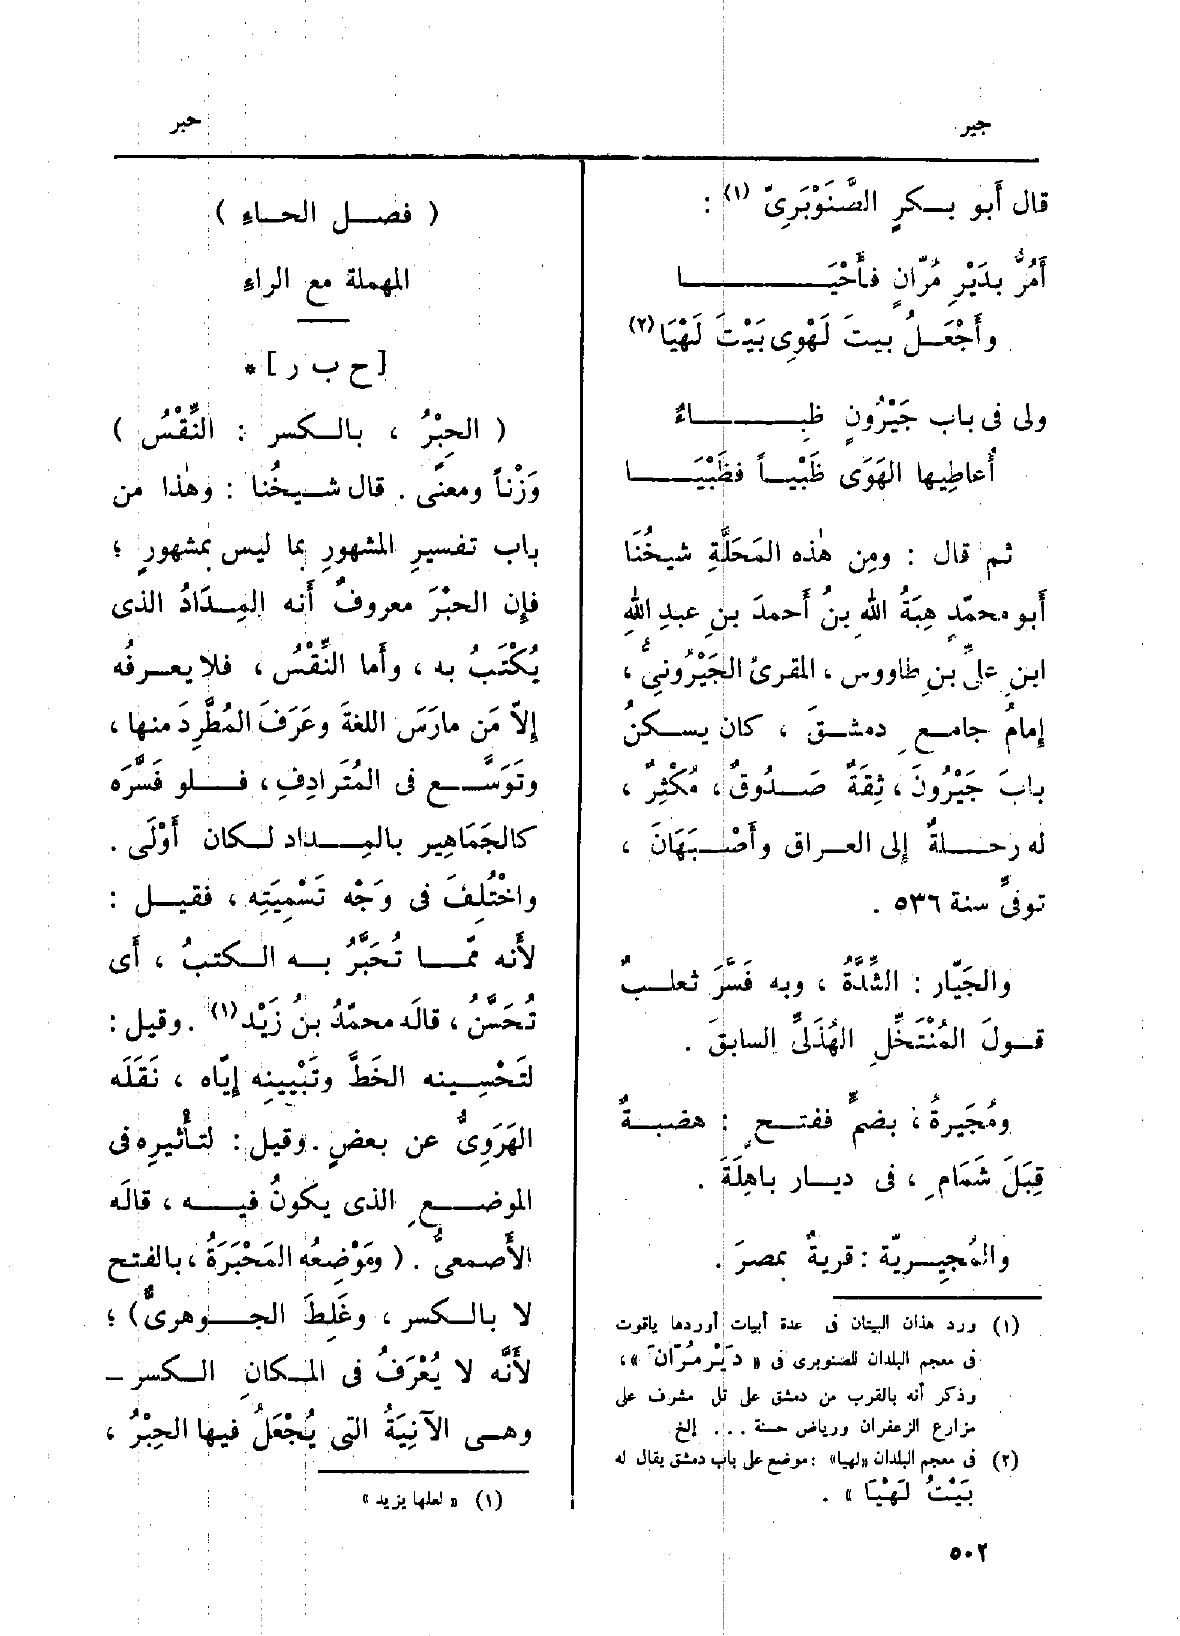 جير
حبر
قال أَبو بـكرٍ الصَّنَوْبَرِىّ (١) :
أَمُرُّ بدَيْرِ مُرّانٍ فأَحْيَـــا
وأَجْعَـلُ بيتَ لَهْوِى بَيْتَ لَهْيَا (٢)
ولى فى باب جَيْرُونٍ ظِبـــاءٌ
أُعاطِيها الهَوَى ظَبْيـاً فظَبْيَــا
ثم قال : ومِن هٰذه المَحَلَّةِ شيخُنَا
أَبو محمّدٍ هِبَةُ اللهِ بنُ أَحمدَ بنِ عبدِ اللهِ
ابنِ علىِّ بنِ طاووس ، المقرئُ الجَيْرُونىُّ ،
إِمامُ جامعِ دمشقَ ، كان يسـكنُ
بابَ جَيْرُونَ ، ثِقَةٌ صَدُوقٌ ، مُكْثِرٌ ،
له رحـلةٌ إِلى العراق وأَصْبَهَانَ ،
توفىّ سنة ٥٣٦ .
والجَيّار : الشِّدَّةُ ، وبه فَسَّرَ ثعلبٌ
قولَ المُنْتَخِّلِ الهُذَلىِّ السابقَ .
ومُجَيرةُ ، بضمٍّ ففتحٍ : هضبةٌ
قِبَلَ شَمَامِ ، فى ديار باهِلَةَ .
والمُجِيريّة : قريةٌ بمصرَ .
(١) ورد هذان البيتان فى عدة أبيات أوردها ياقوت
فى معجم البلدان للصنوبرى فى « دَيْرِ مُرّانَ » ،
وذكر أنه بالقرب من دمشق على تل مشرف على
مزارع الزعفران ورياض حسنة ... إلخ
(٢) فى معجم البلدان «لهيا» : موضع على باب دمشق يقال له
بَيْتُ لَهْيَا » .
( فصـل الحـاء )
المهملة مع الراء
[ ح ب ر ] *
( الحِبْرُ ، بالـكسر : النِّقْسُ )
وَزْناً ومعنًى . قال شيخُنا : وهٰذا من
باب تفسيرِ المشهورِ بما ليس بمشهورٍ ؛
فإِن الحبْرَ معروفٌ أَنه المِدَادُ الذى
يُكْتَبُ به ، وأَما النِّقْسُ ، فلا يعرفُه
إِلاّ مَن مارَسَ اللغةَ وعَرَفَ المُطَّرِدَ منها ،
وتَوَسَّـع فى المُتَرادِفِ ، فـلو فَسَّرَه
كالجَماهِير بالمِـداد لـكان أَوْلَى .
واخْتُلِفَ فى وَجْه تَسْمِيَتِه ، فقيل :
لأَنه ممّا تُحَبَّرُ بـه الـكتبُ ، أَى
تُحَسَّنُ ، قالَه محمّدُ بنُ زَيْد (١) . وقيل :
لتَحْسِينه الخَطَّ وتَبْيِينِه إِيّاه ، نَقَلَه
الهَرَوِىُّ عن بعضٍ . وقيل : لتأْثيرِه فى
الموضـعِ الذى يكونُ فيـه ، قالَه
الأَصمعىُّ . ( ومَوْضِعُه المَحْبَرَةُ ، بالفتح
لا بالـكسر ، وغَلِطَ الجـوهرىُّ ) ؛
لأَنَّه لا يُعْرَفُ فى المـكانِ الـكسر –
وهـى الآنِيَةُ التى يُجْعَلُ فيها الحِبْرُ ،
(١) « لعلها يزيد »
٥٠٢